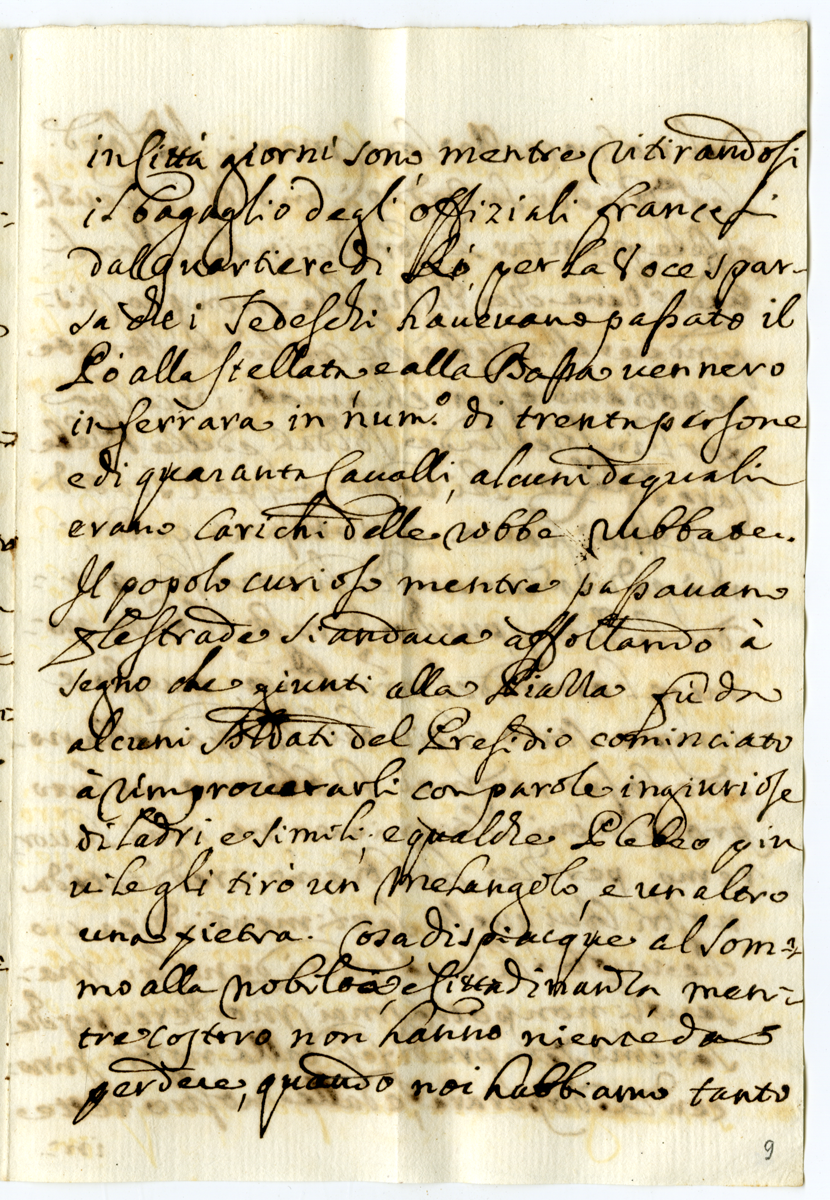 in Città giorni sono, mentre ritirandosi
il bagaglio degl'offiziali francesi
dal quartiere di Pò, per la voce spar-
sa che i Tedeschi havevano passato il
Pò alla stellata e alla Bassa vennero
in ferrara in num.º di trenta persone
e di quaranta Cavalli, alcuni de quali
erano carichi delle robbe rubbate.
Il popolo curioso mentre passavano
p le strade s'andava affollando à
segno che giunti alla Piazza fù da
alcuni Soldati del Presidio cominciato
à rimproverarli con parole ingiuriose
di ladri, e simili, e qualche Plebeo più
vile gli tirò un Melangolo, e un altro
una pietra. Cosa dispiacque al som-
mo alla nobiltà, e Cittadinanza men-
tre costoro non hanno niente da
perdere, quando noi habbiamo tanto
9